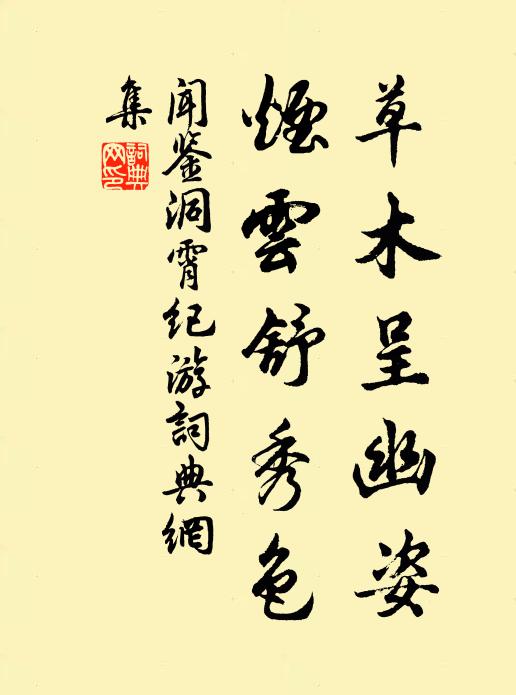 草木呈幽姿
煙雲舒秀色
闻鉴洞霄纪游詞典網
集
詞典網印